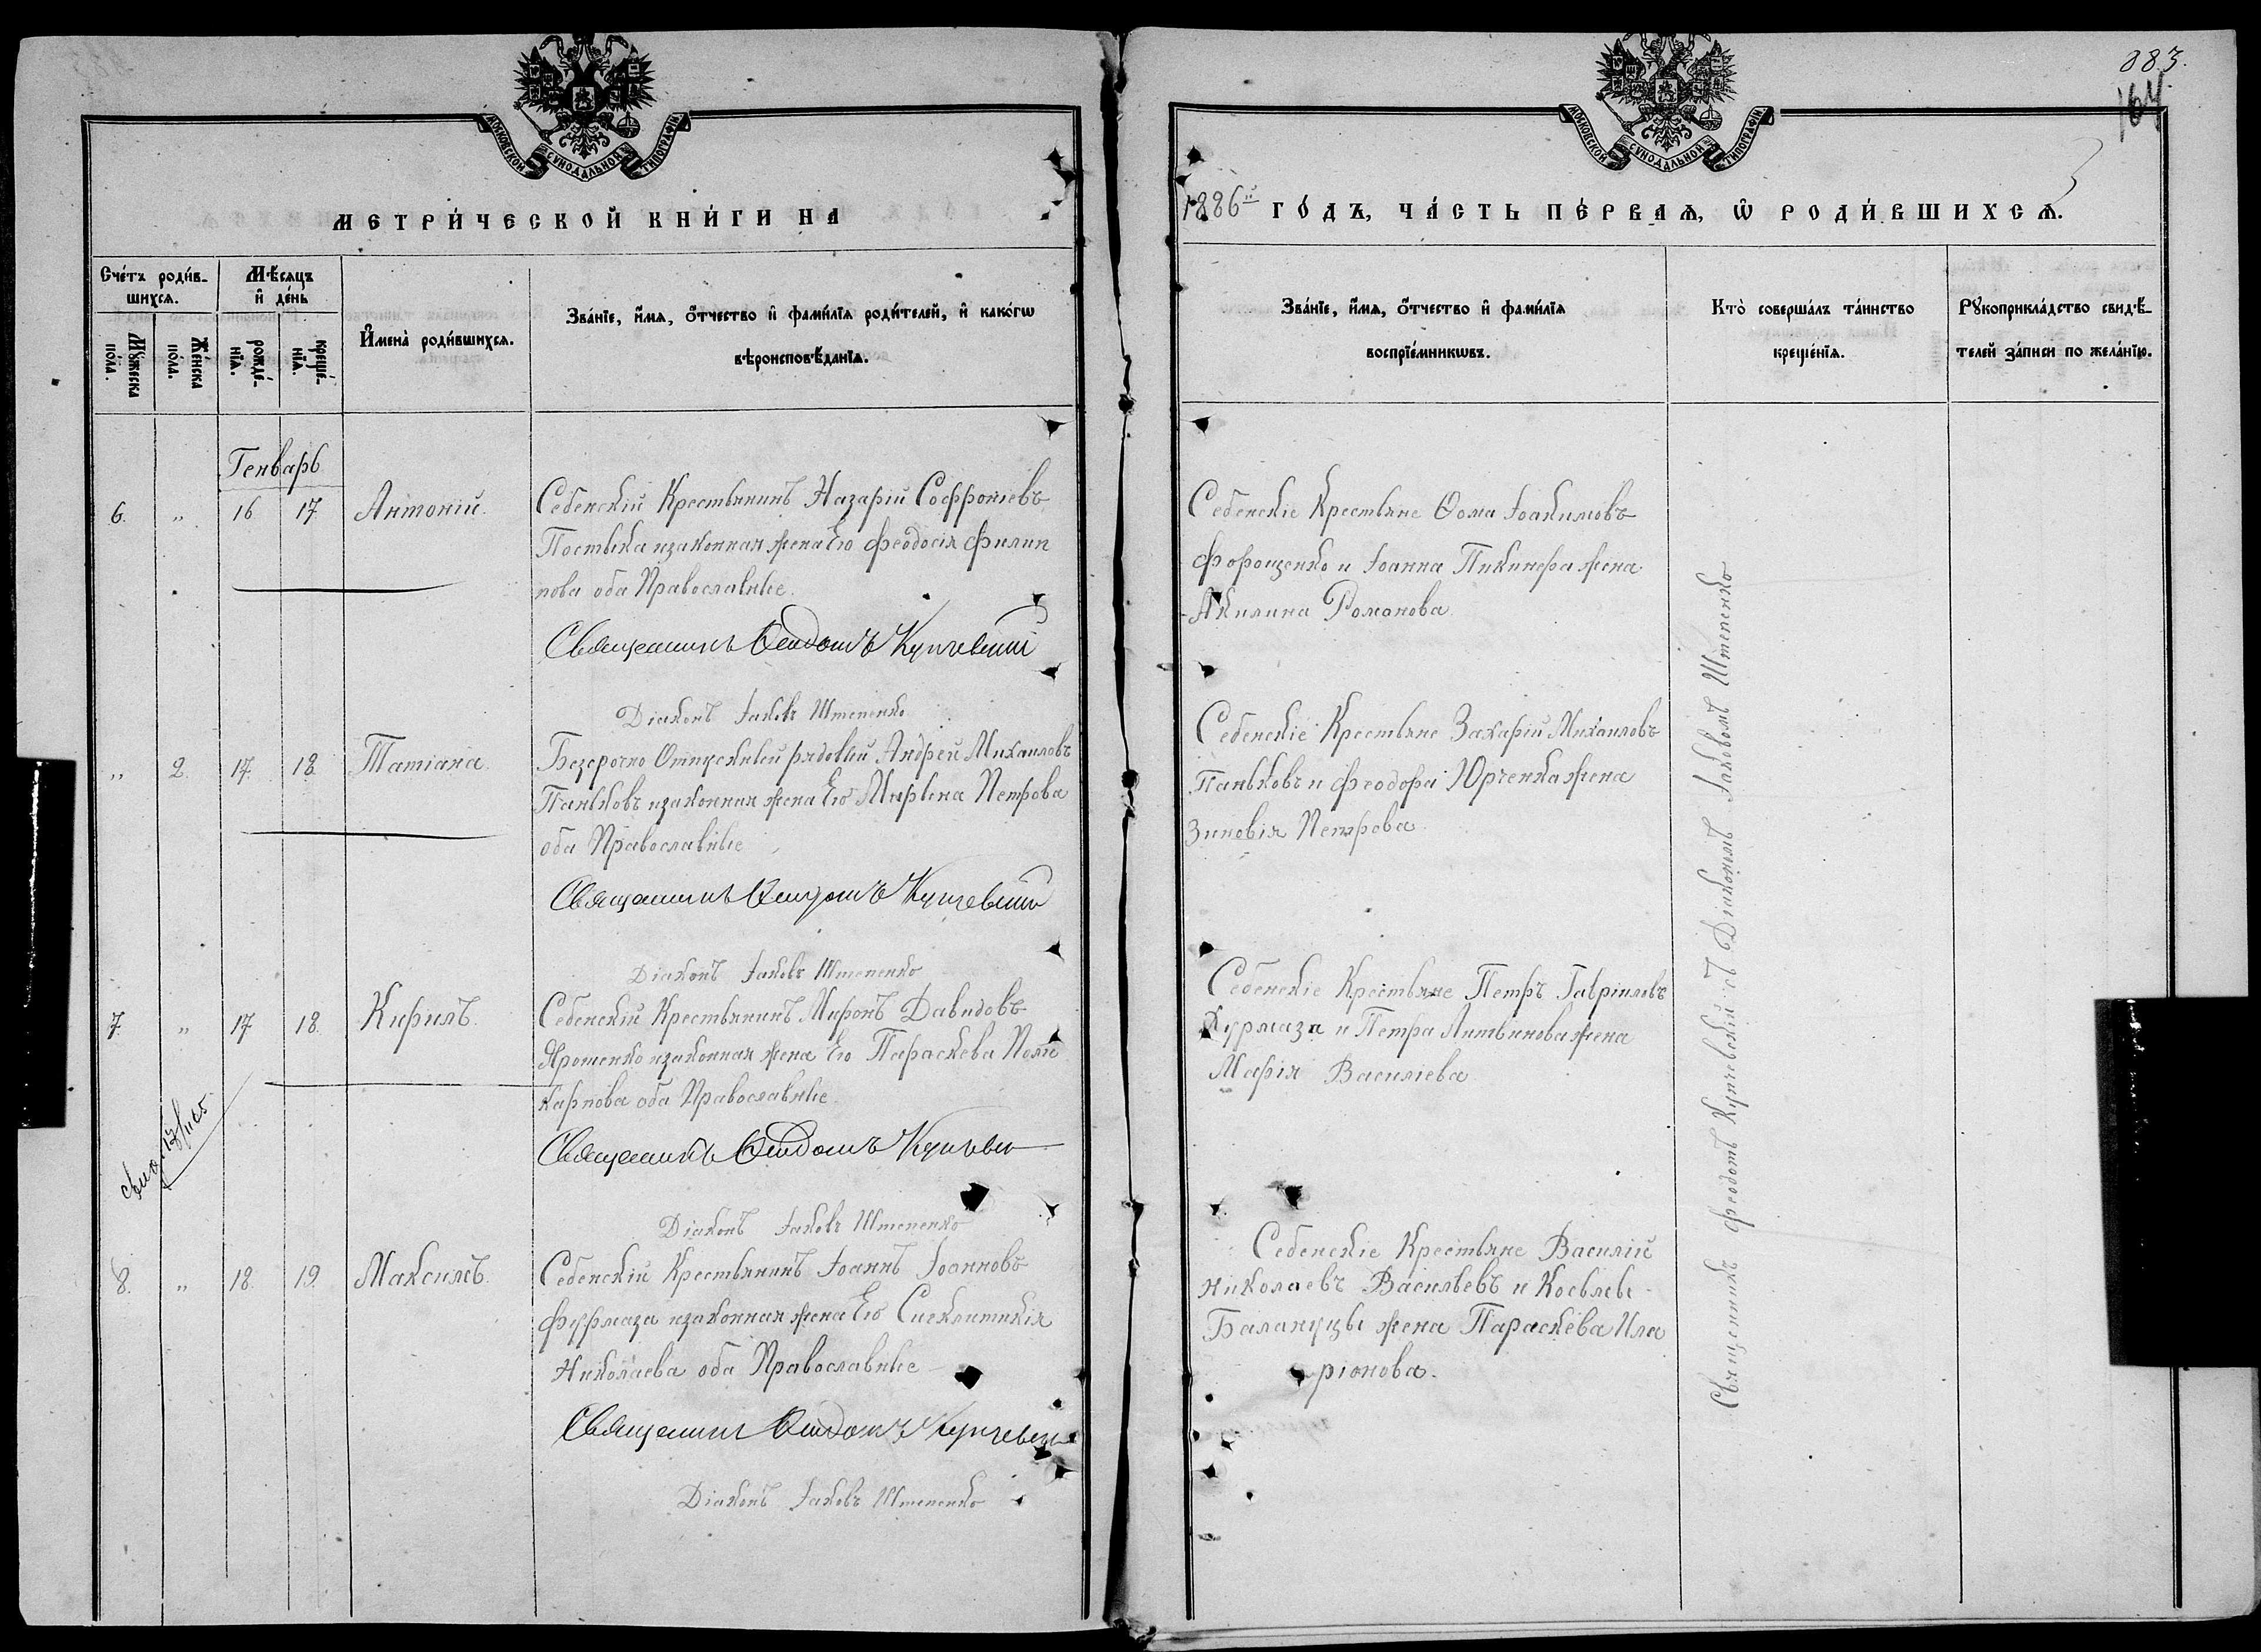 МОСКОВСКОЙ СѴНОДАЛЬНОЙ ТИПОГРАФІИ
МЕТРИ́ЧЕСКОЙ КНИ́ГИ НА
Сче́тъ роди́в-
шихсѧ.
Мѣ́сѧцъ
и҆ де́нь
Мꙋ́жеска
по́ла.
Же́нска
по́ла.
рожде́-
нїѧ.
креще́-
нїѧ.
И҆мена̀ роди́вшихсѧ.
Зва́нїе, и҆́мѧ, ѻ҆́тчество и҆ фами́лїѧ роди́телей, и҆ како́гѡ
вѣроисповѣ́данїѧ.
Генварь
6.
"
16
17
Антоній.
Себенскій Крестьянинъ Назарій Софроніевъ
Постыка изаконная жена Его Феодосія Филип
пова оба Православные.
Священникъ Феодотъ Купчевскій
Діаконъ Іаковъ Штепенко
"
2.
17.
18.
Татіана.
Безсрочно Отпускный рядовый Андрей Михаиловъ
Паньковъ изаконная жена Его Марѳена Петрова
оба Православные
Священникъ Феодотъ Купчевскій
Діаконъ Іаковъ Штепенко
7.
"
17
18.
Кирилъ.
Себенскій Крестьянинъ Миронъ Давидовъ
Яротенко изаконная жена Его Параскева Поли
карпова оба Православные.
Священникъ Феодотъ Купчевск
Діаконъ Іаковъ Штепенко
8.
"
18.
19.
Максимъ.
Себенскій Крестьянинъ Іоаннъ Іоанновъ
Фурмаза изаконная жена Его Сиеклитикія
Николаева оба Православные
Священник Феодотъ Купчевск
Діаконъ Іаковъ Штепенко
883.
164.
МОСКОВСКОЙ СѴНОДАЛЬНОЙ ТИПОГРАФІИ
1886й ГО́ДЪ, ЧА́СТЬ ПЕ́РВАѦ, Ѽ РОДИ́ВШИХСѦ.
Зва́нїе, и҆́мѧ, ѻ҆́тчество и҆ фами́лїѧ
воспрїе́мникѡвъ.
Кто̀ соверша́лъ та́инство
креще́нїѧ.
Рꙋкоприкла́дство свидѣ́-
телей за́писи по жела́нїю.
Себенскіе Крестьяне Ѳома Іоакимовъ
Форощенко и Іоанна Пикинера жена
Акилина Романова.
Себенскіе Крестьяне Захарій Михаиловъ
Паньковъ и Феодора Юрченка жена
Зиновія Петрова.
Себенскіе Крестьяне Петръ Гавріиловъ
Курмаза и Петра Литвинова жена
Марія Василіева
Себенскіе Крестьяне Василій
Николаевъ Васильевъ и
Балануцы жена Параскева Ила
ріонова.
Священникъ Феодотъ Купчевскій съ Діакономъ Іаковомъ Штепенко